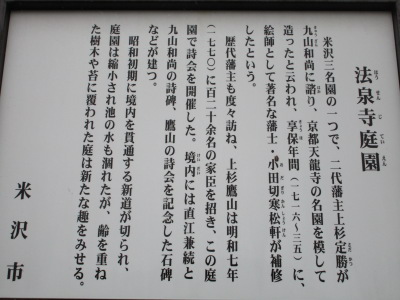 法泉寺庭園
ほうせんじていえん
米沢三名園の一つで、二代藩主上杉定勝が
九山和尚に諮り、京都天龍寺の名園を模して
造ったと云われ、享保年間(一七一六~三五)に、
絵師として著名な藩士・小田切寒松軒が補修
したという。
歴代藩主も度々訪ね、上杉鷹山は明和七年
(一七七〇)に百二十余名の家臣を招き、この庭
園で詩会を開催した。境内には直江兼続と
九山和尚の詩碑、鷹山の詩会を記念した石碑
などが建つ。
昭和初期に境内を貫通する新道が切られ、
庭園は縮小され池の水も涸れたが、齢を重ね
た樹木や苔に覆われた庭は新たな趣をみせる。
米沢市